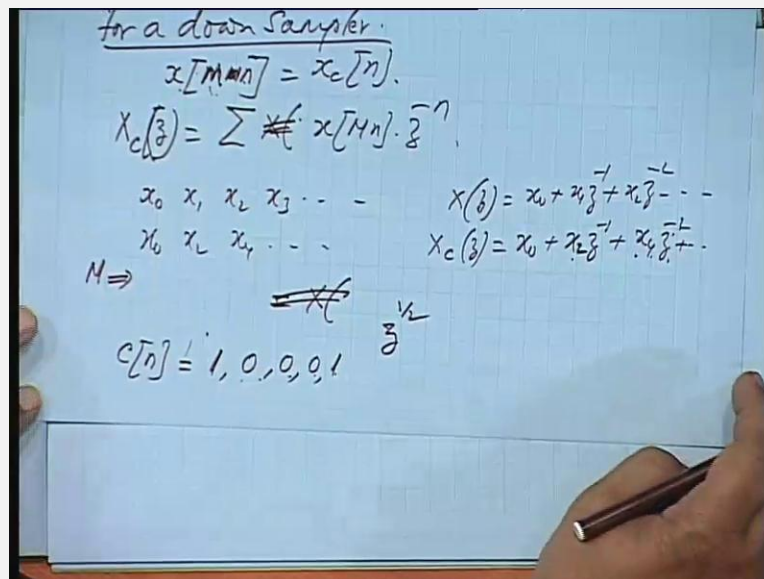 for a down Sampler.
x[Mn] = x_c[n].
X_c(z) = Σ x[Mn]. z^-n.
x_0 x_1 x_2 x_3 ... -
X(z) = x_0 + x_1 z^-1 + x_2 z^-2 - - -
x_0 x_2 x_4 ...
X_c(z) = x_0 + x_2 z^-1 + x_4 z^-2 + ..
M ⇒
z^1/2
C[n] = 1, 0, 0, 0, 1